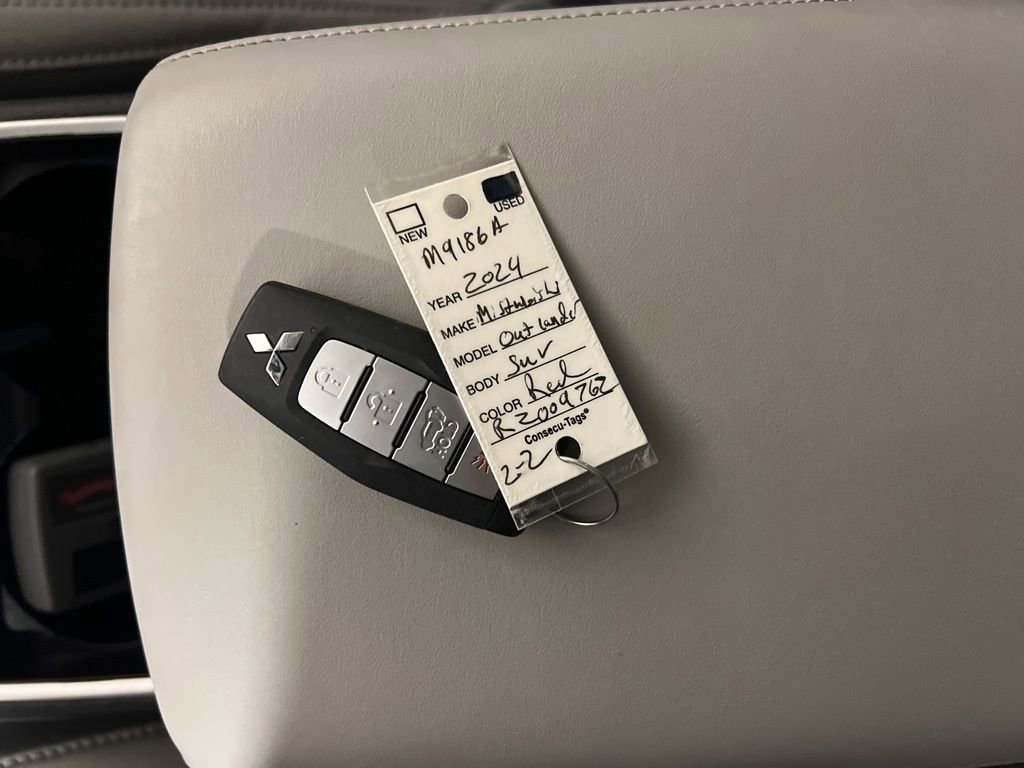 NEW USED
M9186A
YEAR 2024
MAKE Mistubishi
MODEL Outlander
BODY SUV
COLOR Red
RZ009762
Consecu-Tags®
2-2